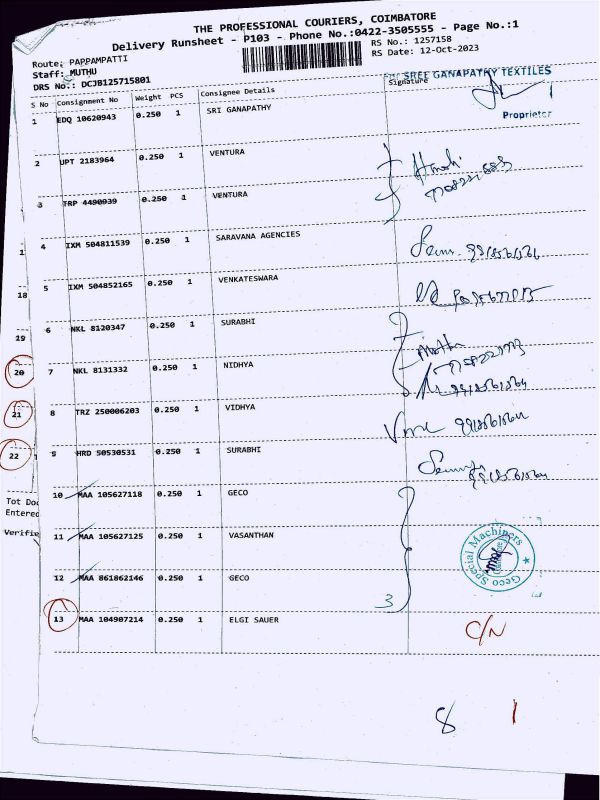 THE PROFESSIONAL COURIERS, COIMBATORE
Delivery Runsheet - P103 - Phone No.:0422-3505555 - Page No.:1
Route: PAPPAMPATTI
RS No.: 1257158
Staff: MUTHU
RS Date: 12-Oct-2023
DRS No.: DCJB125715801
SREE GANAPATHY TEXTILES
S No Consignment No Weight PCS Consignee Details Signature
1 EDQ 10620943 0.250 1 SRI GANAPATHY
Proprietor
2 UPT 2183964 0.250 1 VENTURA
3 TRP 4490939 0.250 1 VENTURA
4 IXM 504811539 0.250 1 SARAVANA AGENCIES
5 IXM 504852165 0.250 1 VENKATESWARA
18
6 NKL 8120347 0.250 1 SURABHI
19
7 NKL 8131332 0.250 1 NIDHYA
20
8 TRZ 250006203 0.250 1 VIDHYA
21
9 HRD 50530531 0.250 1 SURABHI
22
10 MAA 105627118 0.250 1 GECO
Tot Doc
Entered
11 MAA 105627125 0.250 1 VASANTHAN
Verifie
Geco Special Machiners
12 MAA 861862146 0.250 1 GECO
3
13 MAA 104907214 0.250 1 ELGI SAUER
C/N
8 1